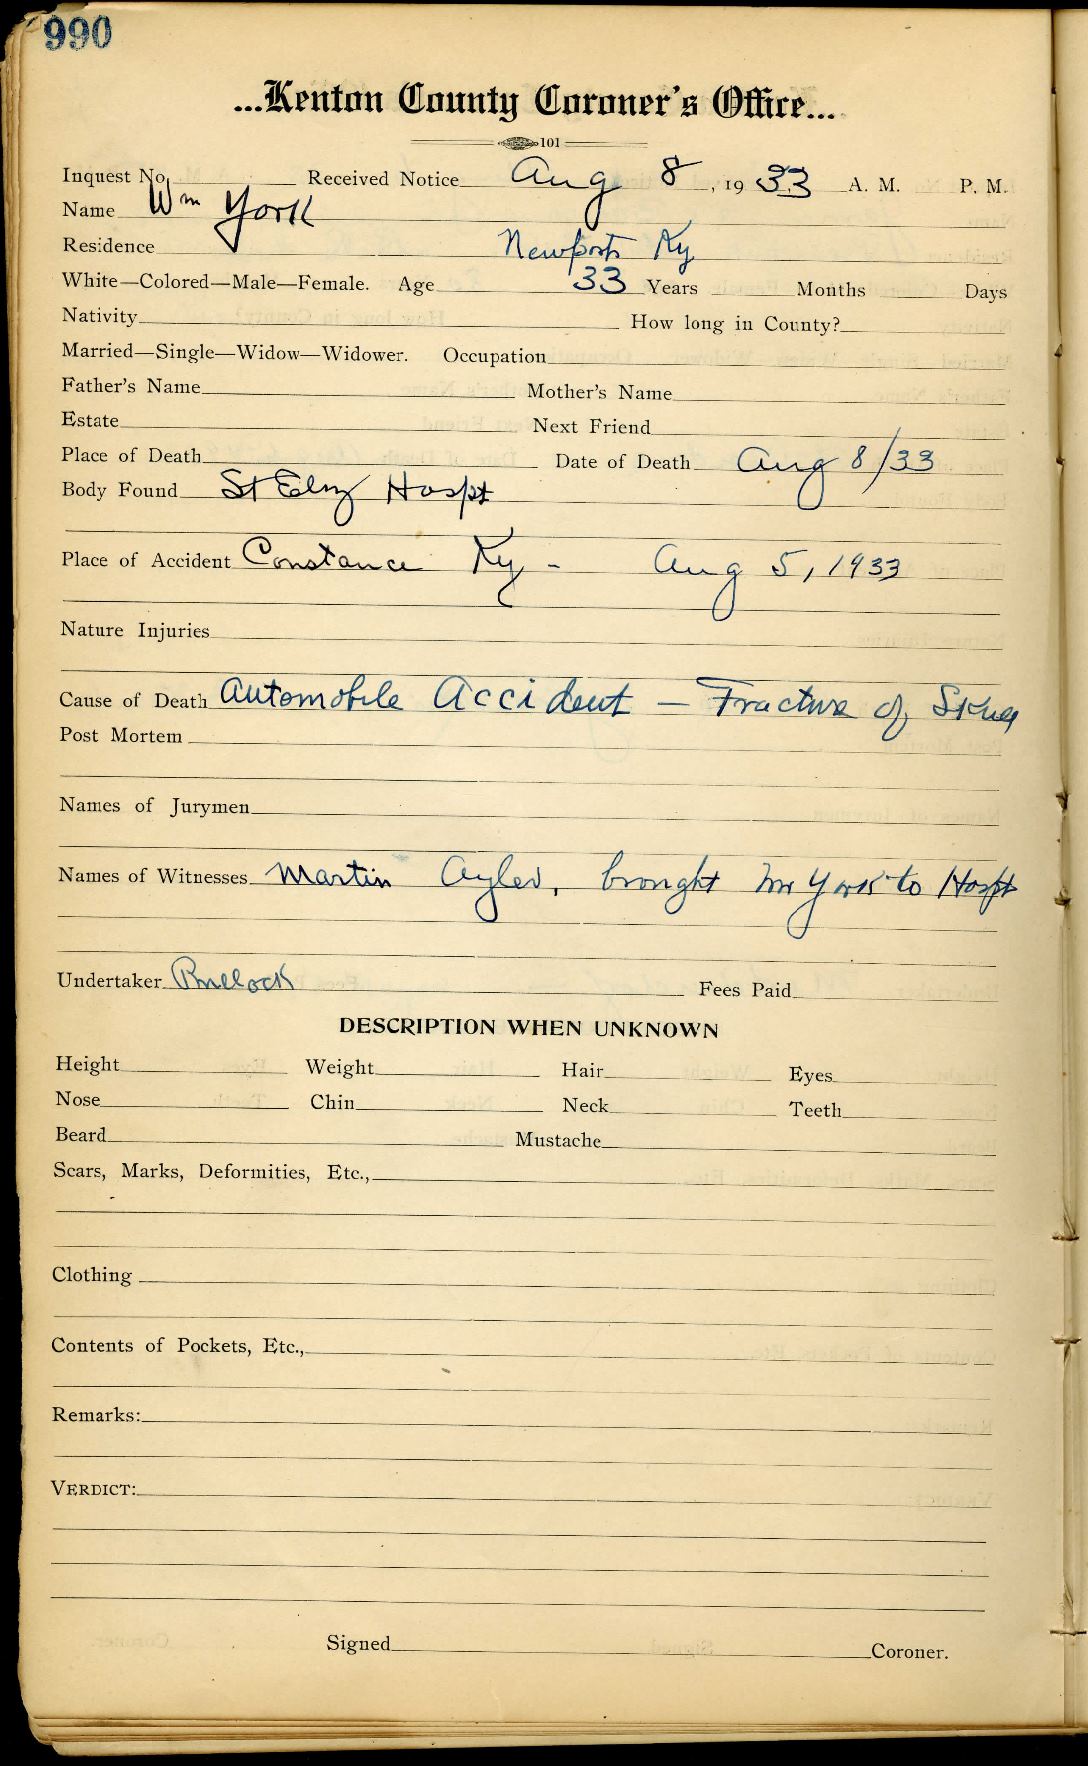 990
...Kenton County Coroner's Office...
101
Inquest No. Received Notice Aug 8, 1933 A. M. P. M.
Name Wm York
Residence Newport Ky
White—Colored—Male—Female. Age 33 Years Months Days
Nativity How long in County?
Married—Single—Widow—Widower. Occupation
Father's Name Mother's Name
Estate Next Friend
Place of Death Date of Death Aug 8/33
Body Found St Eliz Hospt
Place of Accident Constance Ky - Aug 5, 1933
Nature Injuries
Cause of Death Automobile Accident — Fracture of Skull
Post Mortem
Names of Jurymen
Names of Witnesses Martin Aylor, brought Mr York to Hospt
Undertaker Fees Paid
DESCRIPTION WHEN UNKNOWN
Height Weight Hair Eyes
Nose Chin Neck Teeth
Beard Mustache
Scars, Marks, Deformities, Etc.,
Clothing
Contents of Pockets, Etc.,
Remarks:
VERDICT:
Signed Coroner.